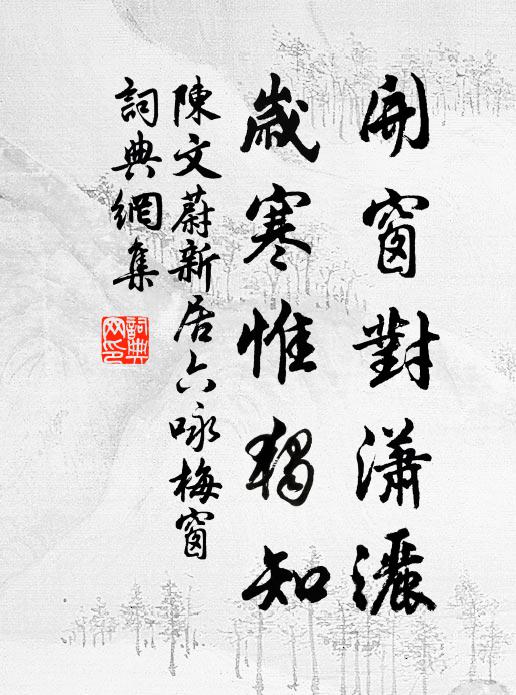 開窗對瀟灑
歲寒惟獨知
陳文蔚新居六咏梅窗
詞典網集
詞典网印